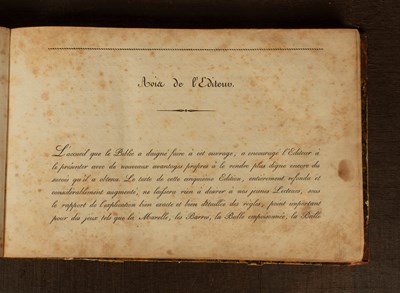 Avis de l'Editeur.
L'accueil que le Public a daigné faire à cet ouvrage, a encouragé l'Editeur à
le présenter avec de nouveaux avantages propres à le rendre plus digne encore du
succès qu'il a obtenu. Le texte de cette cinquième Edition, entièrement refondu et
considérablement augmenté, ne laissera rien à désirer à nos jeunes Lecteurs, sous
le rapport de l'explication bien exacte et bien détaillée des règles, point important
pour des jeux tels que la Marelle, les Barres, la Balle empoisonnée, la Balle